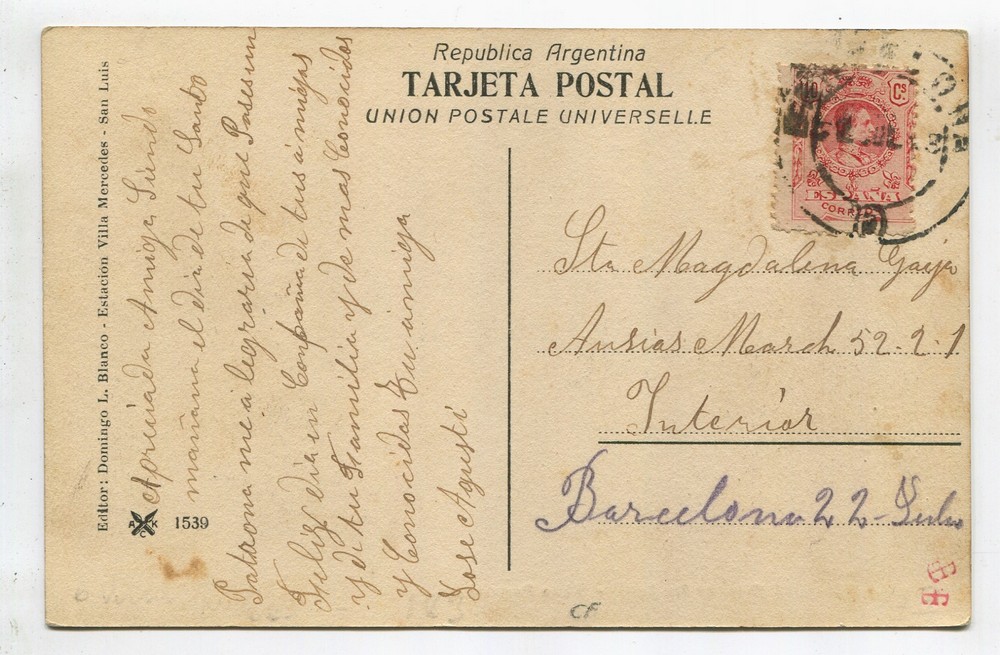 Republica Argentina
TARJETA POSTAL
UNION POSTALE UNIVERSELLE
10 Cs.
CORREOS
Editor: Domingo L. Blanco - Estación Villa Mercedes - San Luis
AK
1539
Apriciada Amiga Siendo
mañana el dia de tu Santo
Patrona me álegraria que Pases un
Feliz dia en Conpañia de tus ámigas
y de tu Familia y de mas Conocidos
y Conocidas Tu ámiga
Jose Agustí
Sta Magdalena
Ausias March 52-2-1
Interiór
Barcelona 22-Julio
CF